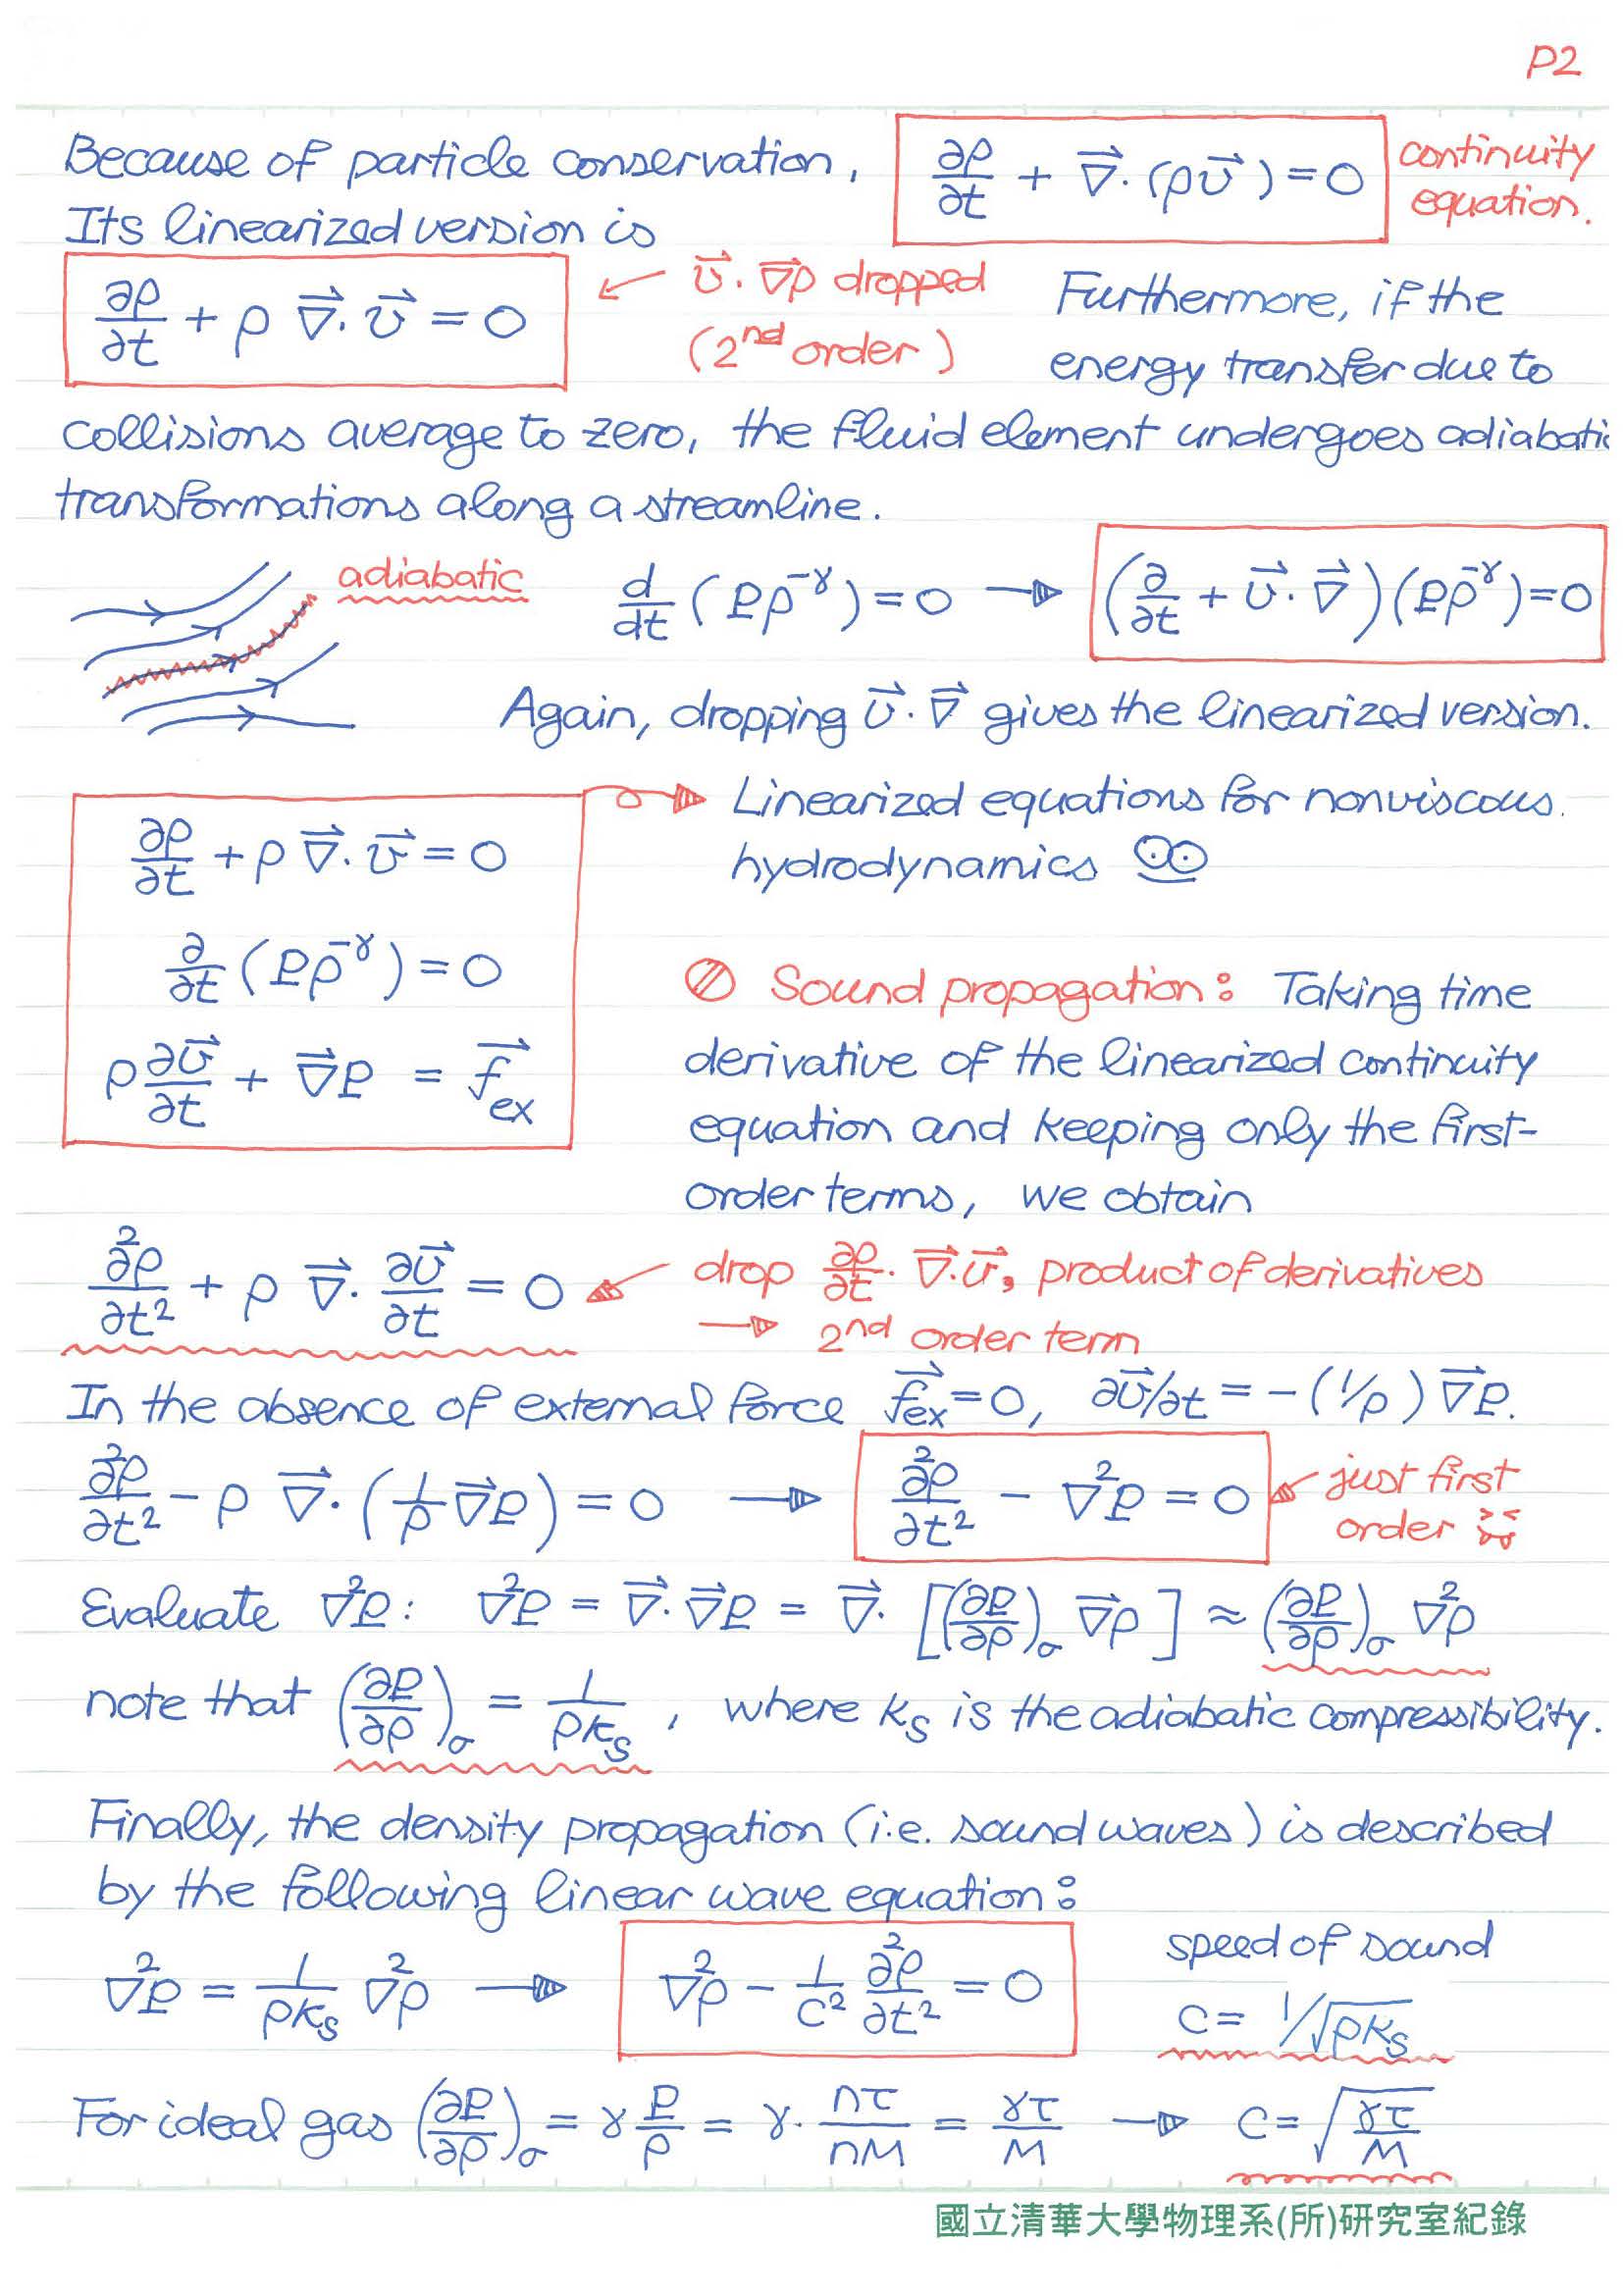 P2
Because of particle conservation, ∂ρ/∂t + ∇⃗·(ρv⃗) = 0 continuity equation.
Its linearized version is
∂ρ/∂t + ρ ∇⃗·v⃗ = 0 ← v⃗·∇⃗ρ dropped (2nd order) Furthermore, if the
energy transfer due to
collisions average to zero, the fluid element undergoes adiabatic
transformations along a streamline.
adiabatic d/dt (Pρ^-γ) = 0 → (∂/∂t + v⃗·∇⃗)(Pρ^-γ) = 0
Again, dropping v⃗·∇⃗ gives the linearized version.
∂ρ/∂t + ρ ∇⃗·v⃗ = 0
∂/∂t (Pρ^-γ) = 0
ρ ∂v⃗/∂t + ∇⃗P = f⃗_ex
→ Linearized equations for nonviscous.
hydrodynamics
Sound propagation: Taking time
derivative of the linearized continuity
equation and keeping only the first-
order terms, we obtain
∂²ρ/∂t² + ρ ∇⃗·∂v⃗/∂t = 0 ← drop ∂ρ/∂t · ∇⃗·v⃗, product of derivatives
→ 2nd order term
In the absence of external force f⃗_ex = 0, ∂v⃗/∂t = -(1/ρ) ∇⃗P.
∂²ρ/∂t² - ρ ∇⃗·(1/ρ ∇⃗P) = 0 → ∂²ρ/∂t² - ∇²P = 0 ← just first
order
Evaluate ∇²P: ∇²P = ∇⃗·∇⃗P = ∇⃗·[(∂P/∂ρ)_σ ∇⃗ρ] ≈ (∂P/∂ρ)_σ ∇²ρ
note that (∂P/∂ρ)_σ = 1/(ρκ_S), where κ_S is the adiabatic compressibility.
Finally, the density propagation (i.e. sound waves) is described
by the following linear wave equation:
∇²P = 1/(ρκ_S) ∇²ρ → ∇²ρ - 1/c² ∂²ρ/∂t² = 0
speed of sound
c = 1/√(ρκ_S)
For ideal gas (∂P/∂ρ)_σ = γ P/ρ = γ· nτ/nM = γτ/M → c = √(γτ/M)
國立清華大學物理系(所)研究室紀錄